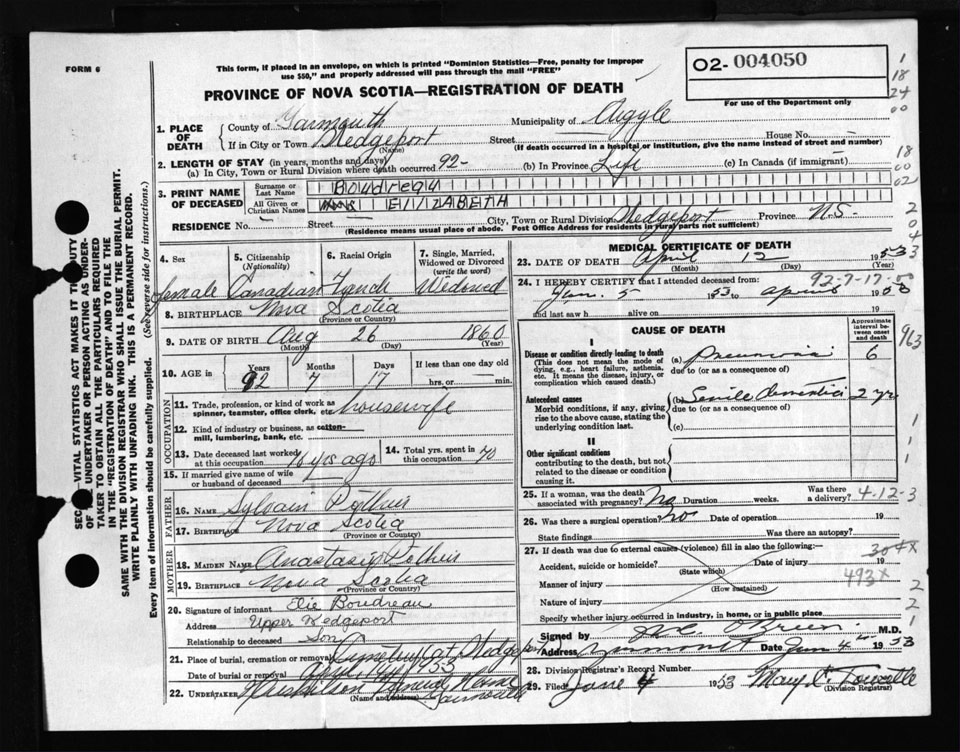 FORM 6
This form, if placed in an envelope, on which is printed "Dominion Statistics—Free, penalty for improper
use $50," and properly addressed will pass through the mail "FREE"
O2- 004050
For use of the Department only
PROVINCE OF NOVA SCOTIA—REGISTRATION OF DEATH
1. PLACE OF DEATH
County of Yarmouth Municipality of Argyle
If in City or Town Wedgeport (Name) Street House No. —
(If death occurred in a hospital or institution, give the name instead of street and number)
2. LENGTH OF STAY (in years, months and days)
(a) In City, Town or Rural Division where death occurred 92- (b) In Province Life (c) In Canada (if immigrant)
3. PRINT NAME OF DECEASED
Surname or Last Name Boudreau
All Given or Christian Names ELIZABETH
RESIDENCE No. — Street City, Town or Rural Division Wedgeport Province N.S.
(Residence means usual place of abode. Post Office Address for residents in rural parts not sufficient)
4. Sex female
5. Citizenship (Nationality) Canadian
6. Racial Origin French
7. Single, Married, Widowed or Divorced (write the word) Widowed
8. BIRTHPLACE Nova Scotia
(Province or Country)
9. DATE OF BIRTH Aug 26 1860
(Month) (Day) (Year)
10. AGE in Years 92 Months 7 Days 17 If less than one day hrs. or min.
OCCUPATION
11. Trade, profession, or kind of work as spinner, teamster, office clerk, etc housewife
12. Kind of industry or business, as cotton-mill, lumbering, bank, etc.
13. Date deceased last worked at this occupation yrs ago
14. Total yrs. spent in this occupation 70
15. If married give name of wife or husband of deceased
FATHER
16. NAME Sylvain Pothier
17. BIRTHPLACE Nova Scotia
(Province or Country)
MOTHER
18. MAIDEN NAME Anastasia Pothier
19. BIRTHPLACE Nova Scotia
(Province or Country)
20. Signature of informant Elie Boudreau
Address Upper Wedgeport
Relationship to deceased Son
21. Place of burial, cremation or removal Cemetery at Wedgeport
Date of burial or removal
22. UNDERTAKER Funeral Home
(Name and Address) Yarmouth
MEDICAL CERTIFICATE OF DEATH
23. DATE OF DEATH April 12 1953
(Month) (Day) (Year)
92-7-17-5-0
24. I HEREBY CERTIFY that I attended deceased from:
Jan. 5 1953 to April 19
and last saw h alive on 19
CAUSE OF DEATH
Approximate interval between onset and death
I
Disease or condition directly leading to death
(This does not mean the mode of dying, e.g., heart failure, asthenia, etc. It means the disease, injury, or complication which caused death.)
(a) Pneumonia 6
due to (or as a consequence of)
Antecedent causes
Morbid conditions, if any, giving rise to the above cause, stating the underlying condition last.
(b) Senile dementia 2 yr
due to (or as a consequence of)
(c)
II
Other significant conditions
contributing to the death, but not related to the disease or condition causing it.
25. If a woman, was the death associated with pregnancy? No Duration weeks. Was there a delivery?
4-12-3
26. Was there a surgical operation? no Date of operation 19
State findings Was there an autopsy?
27. If death was due to external causes (violence) fill in also the following:—
Accident, suicide or homicide? Date of injury 19
(State which)
304X
Manner of injury
(How sustained)
493X
Nature of injury
Specify whether injury occurred in industry, in home, or in public place
Signed by O'Brien M.D.
Address Yarmouth Date Jun 4 1953
28. Division Registrar's Record Number
29. Filed June 4 1953 Mary
(Division Registrar)
SEC. —VITAL STATISTICS ACT MAKES IT THE DUTY
OF UNDERTAKER OR PERSON ACTING AS UNDER-
TAKER TO OBTAIN ALL THE PARTICULARS REQUIRED
IN THE "REGISTRATION OF DEATH" AND TO FILE THE
SAME WITH THE DIVISION REGISTRAR WHO SHALL ISSUE THE BURIAL PERMIT.
WRITE PLAINLY WITH UNFADING INK. THIS IS A PERMANENT RECORD.
Every item of information should be carefully supplied. (See reverse side for instructions.)
1
18
24
00
18
00
02
2
0
4
3
963
1
1
1
2
2
1